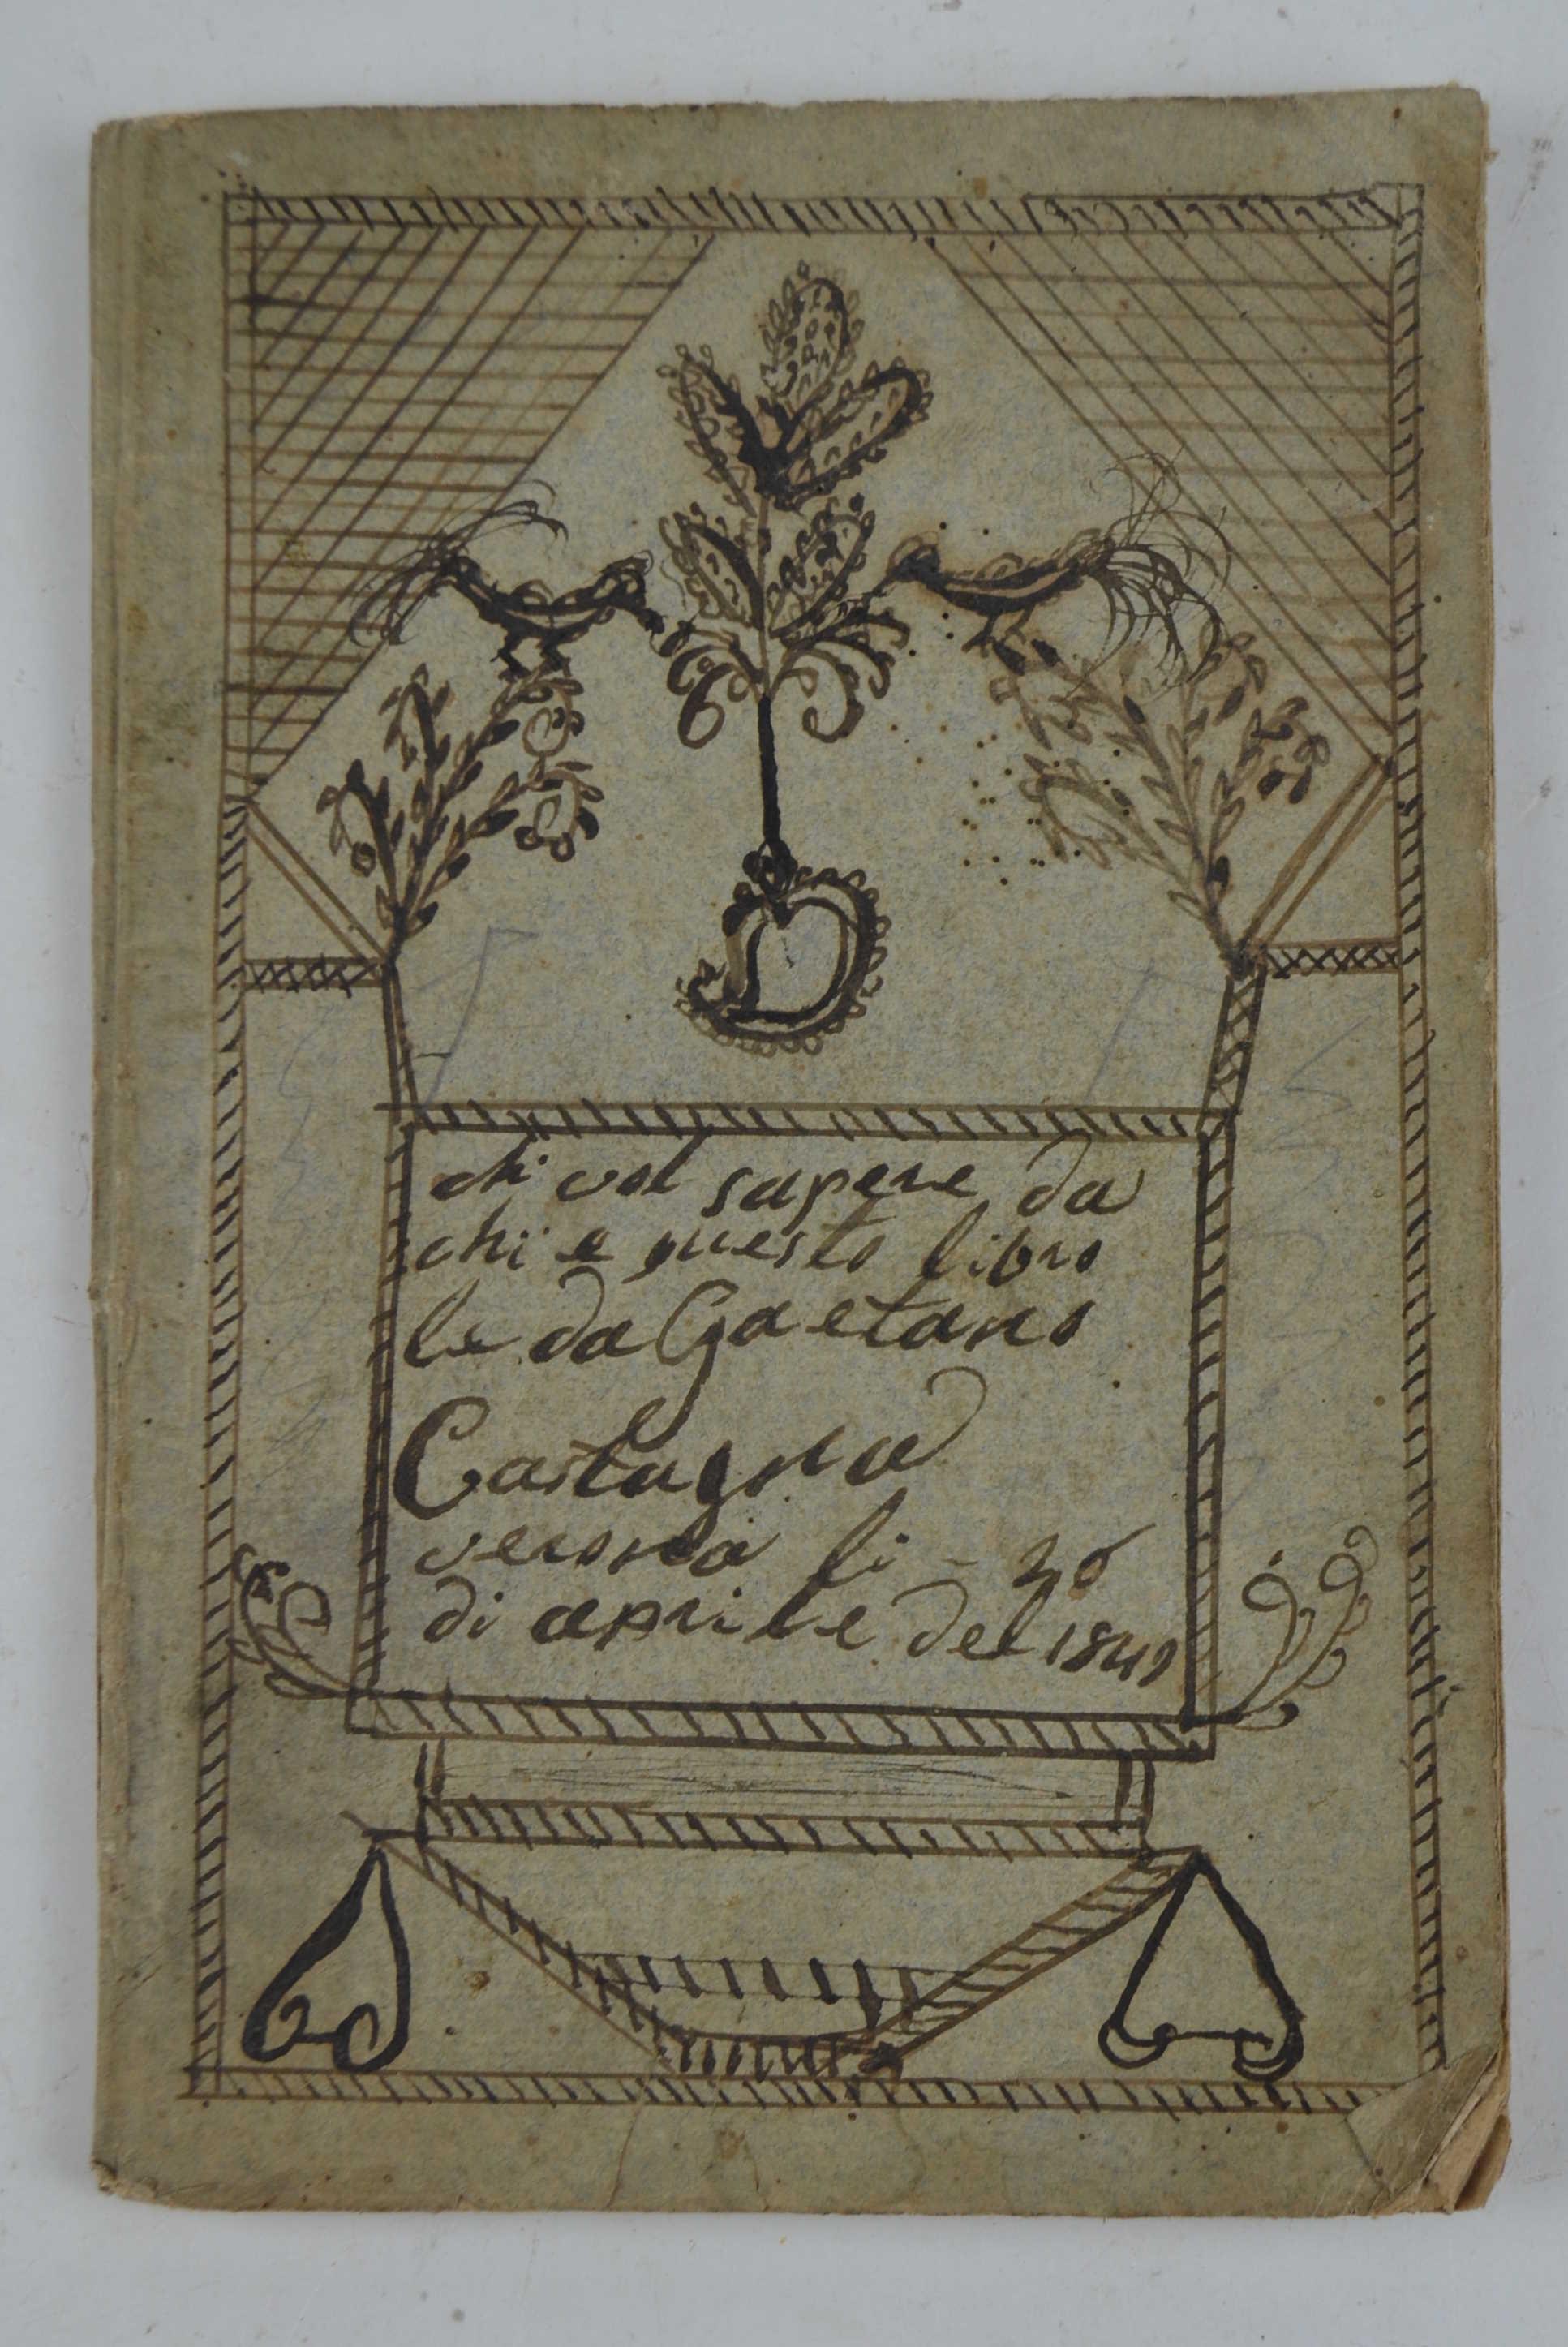 chi vol sapere da
chi e questo libro
le da Gaetano
Castagna
verona li - 26
di aprile del 1849